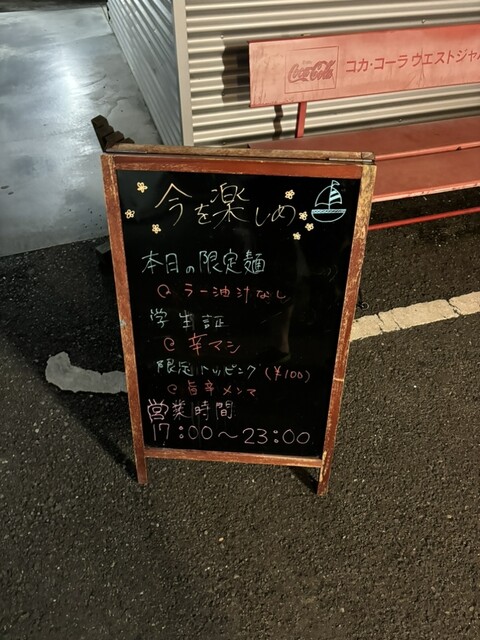 Coca-Cola
コカ・コーラウエストジャパ
今を楽しめ
本日の限定麺
ラー油汁なし
学生証
辛マシ
限定トッピング(¥100)
旨辛メンマ
営業時間
17:00〜23:00